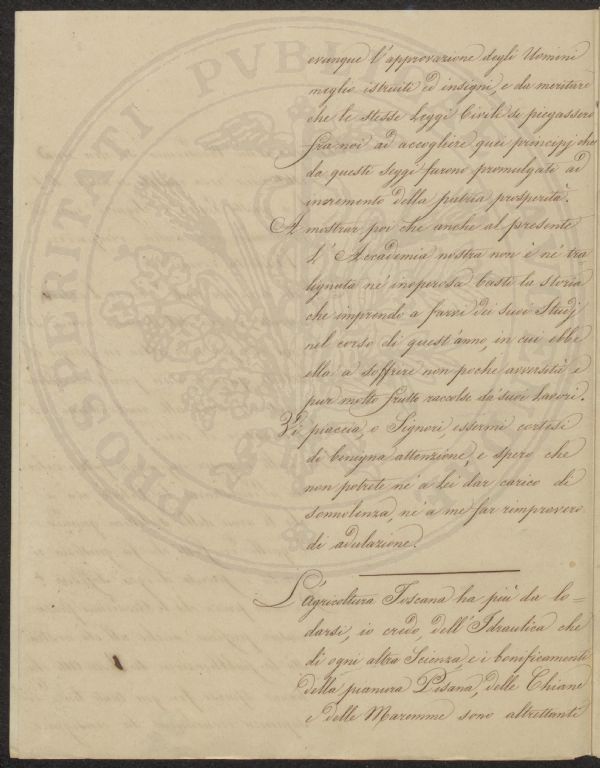 ovunque l'approvazione degli Uomini
meglio istruiti ed insigni, e da meritare
che le stesse Leggi Civili si piegassero
fra noi ad accogliere quei principj che
da questi seggi furono promulgati ad
incremento della patria prosperità.
A mostrar poi che anche al presente
l'Accademia nostra non è nè tra
lignata nè inoperosa basti la storia
che imprendo a farvi dei suoi Studj
nel corso di quest'anno, in cui ebbe
ella a soffrire non poche avversità e
pur molto frutto raccolse da' suoi lavori.
Vi piaccia, o Signori, essermi cortesi
di benigna attenzione, e spero che
non potrete nè a Lei dar carico di
sonnolenza, nè a me far rimprovero
di adulazione.
L'Agricoltura Toscana ha più da lo=
darsi, io credo, dell'Idraulica che
di ogni altra Scienza, e i bonificamenti
della pianura Pisana, delle Chiane
e delle Maremme sono altrettante
PROSPERITATI PVBLI